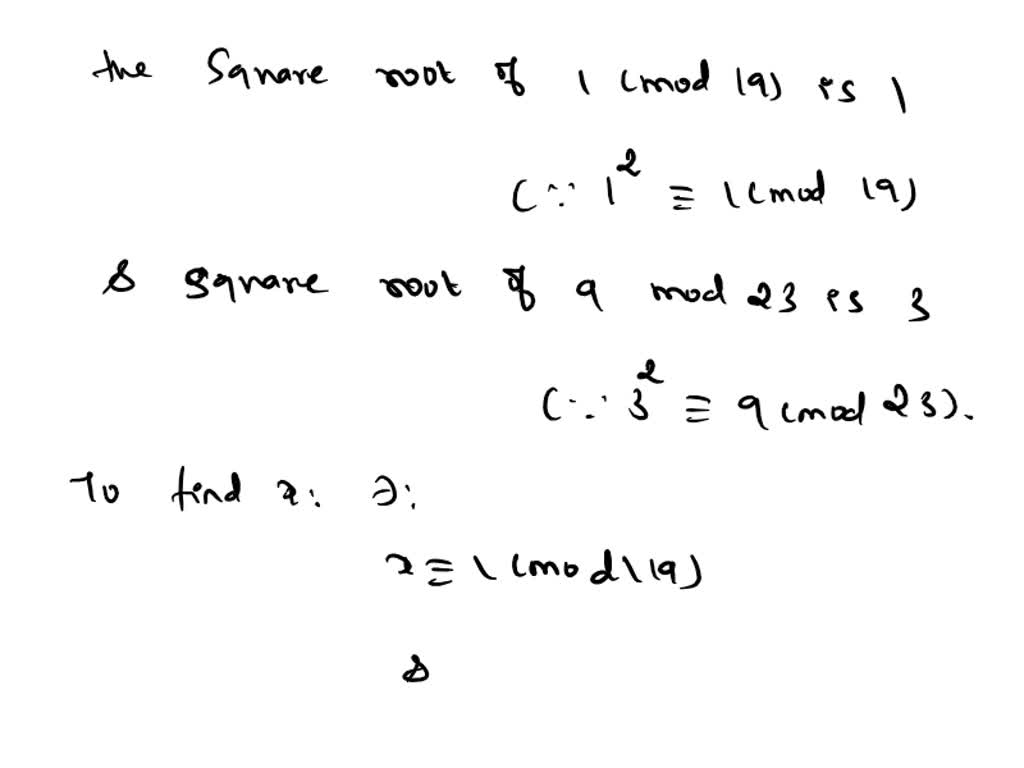 the Square root of 1 (mod 19) is 1
(∵ 1² ≡ 1 (mod 19)
& square root of 9 mod 23 is 3
(∵ 3² ≡ 9 (mod 23).
To find x: ∋:
x ≡ 1 (mod 119)
&